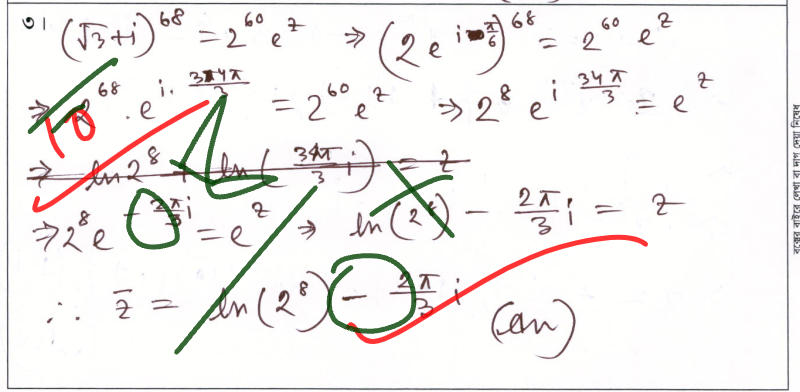 ৩।
(√3+i)^68 = 2^60 e^z ⇒ (2 e^{i π/6})^68 = 2^60 e^z
⇒ 2^68 · e^{i · 34π/3} = 2^60 e^z ⇒ 2^8 e^{i 34π/3} = e^z
10
⇒ ln 2^8 + ln(34π/3 i) = z
⇒ 2^8 e^{-2π/3 i} = e^z ⇒ ln(2^8) - 2π/3 i = z
∴ z̄ = ln(2^8) - 2π/3 i (an)
বক্সের বাইরে লেখা বা দাগ দেয়া নিষেধ